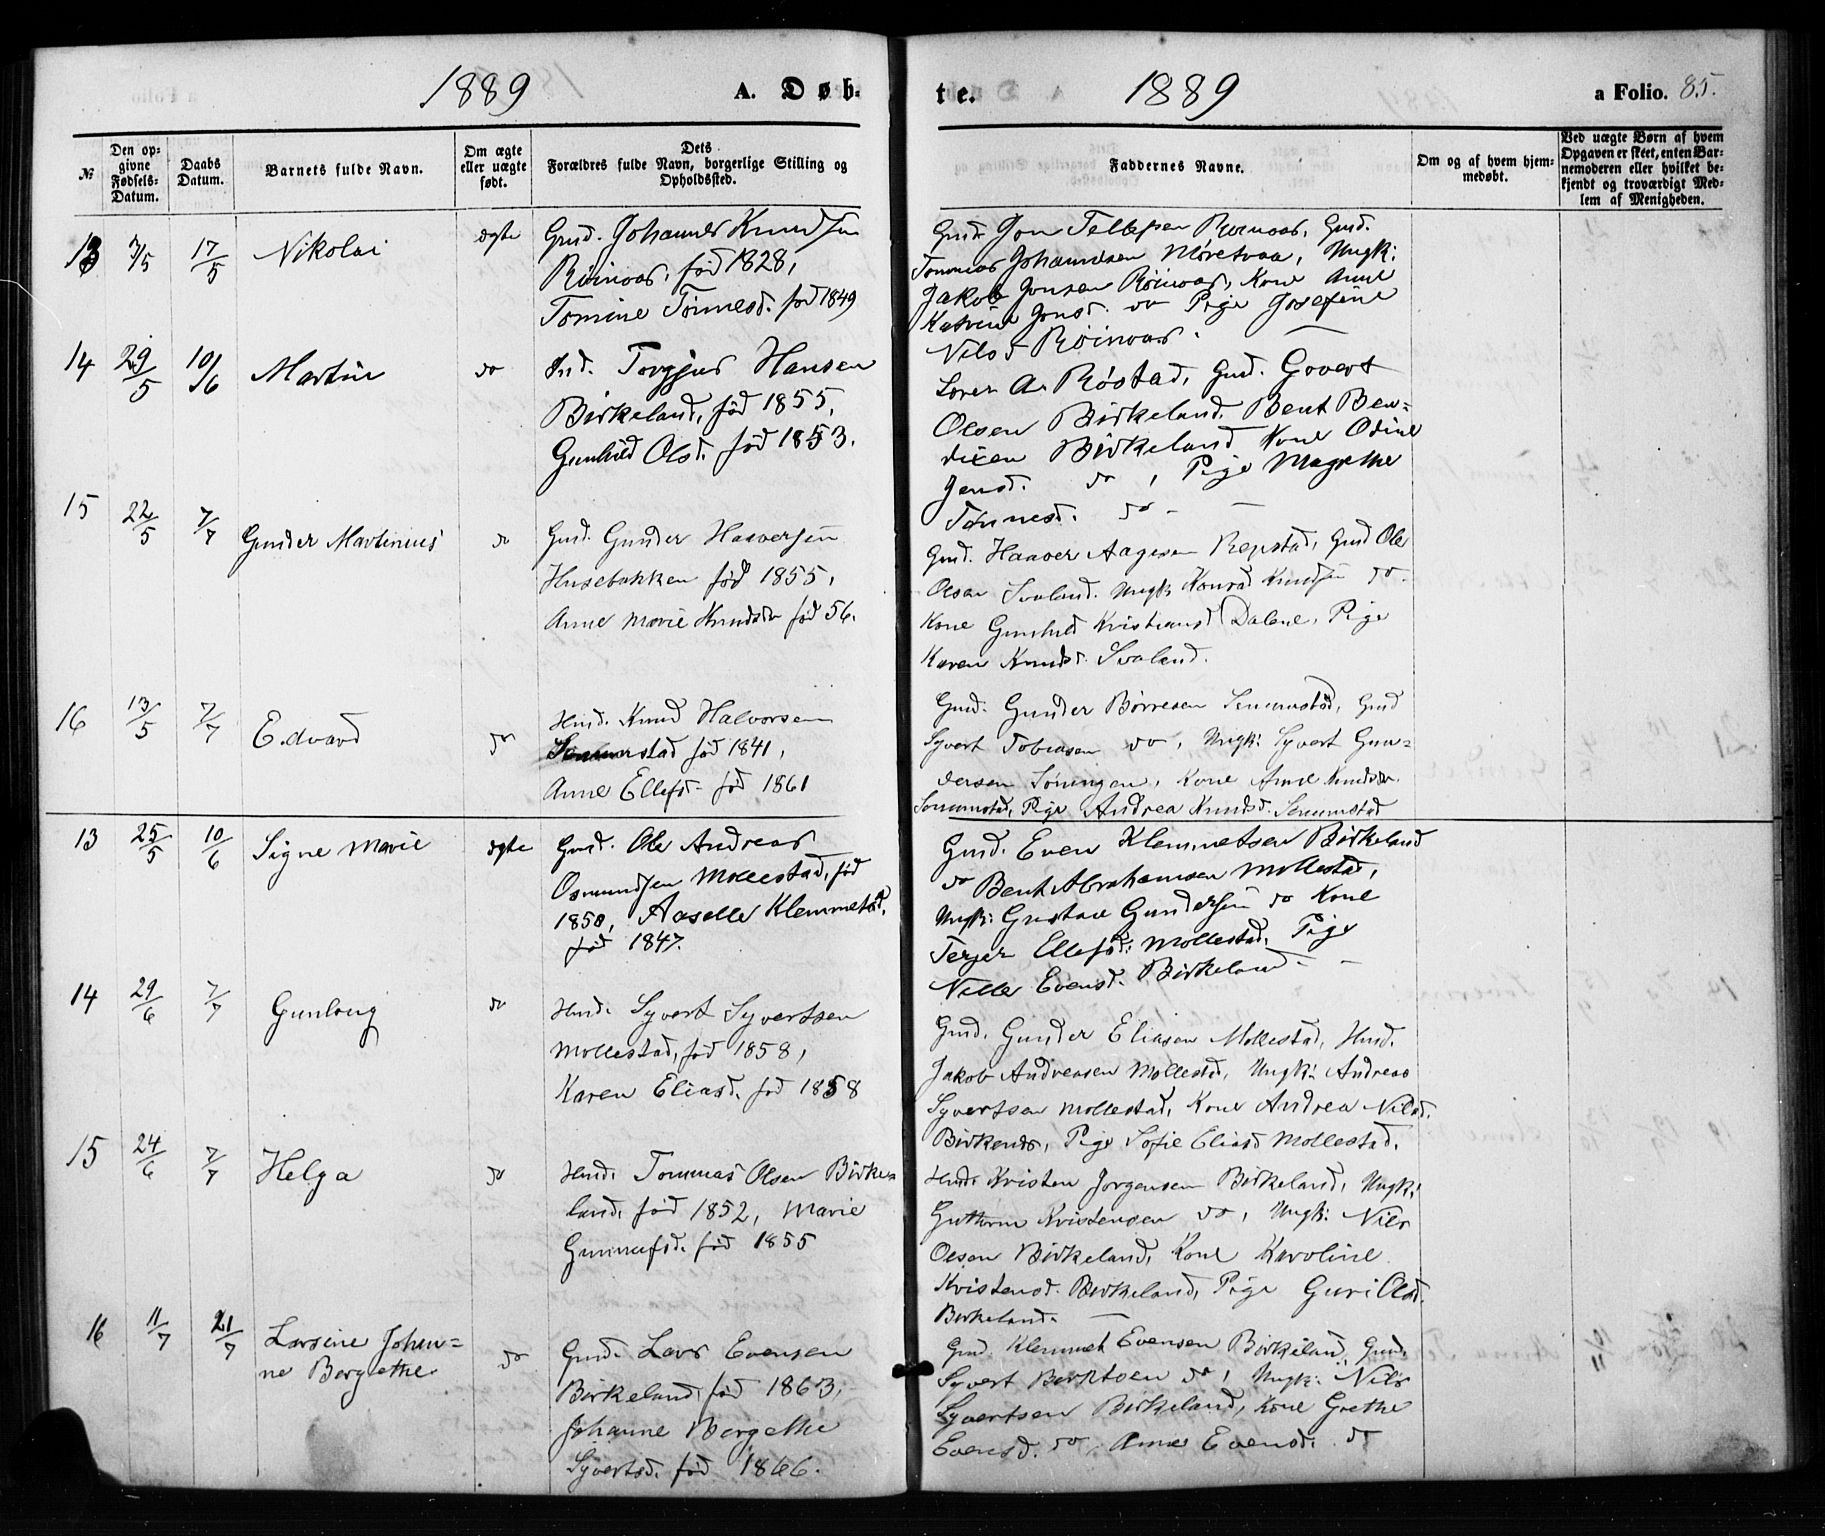 1889 A. Døb-
№
Den opgivne Fødsels-Datum.
Daabs Datum.
Barnets fulde Navn.
Om ægte eller uægte født.
Dets Forældres fulde Navn, borgerlige Stilling og Opholdssted.
13 7/5 17/5 Nikolai ægte Gmd. Johannes Knudsen
Röinaas, föd 1828,
Tomine Tönnesd. föd 1849
14 29/5 10/6 Martin do Ind. Torgjus Hansen
Birkeland, föd 1855,
Gunhild Olsd. föd 1853.
15 22/5 7/7 Gunder Martinius do Gmd. Gunder Haaversen
Husebakken föd 1855,
Anne Marie Knudsdr föd 56.
16 13/5 7/7 Edvard do Hmd. Knud Halvorsen
Senumstad föd 1841,
Anne Ellefsd. föd 1861
13 25/5 10/6 Signe Marie ægte Gmd. Ole Andreas
Osmundsen Mollestad, föd
1850, Aaselle Klemmetsd.
föd 1847.
14 29/6 7/7 Gunlaug do Hmd. Syvert Syvertsen
Mollestad, föd 1858,
Karen Eliasd. föd 1858
15 24/6 7/7 Helga do Hmd. Tommas Olsen Birke-
land, föd 1852, Marie
Gunnufsd. föd 1855
16 11/7 21/7 Larsine Johan-
ne Bergethe do Gmd. Lars Evensen
Birkeland föd 1863,
Johanne Bergethe
Syvertsd. föd 1866.
te. 1889 a Folio. 85.
Faddernes Navne.
Om og af hvem hjemmedøbt.
Ved uægte Børn af hvem Opgaven er skeet, enten Barnemoderen eller hvilket bekjendt og troværdigt Medlem af Menigheden.
Gmd. Jon Tellefsen Röinaas, Gmd.
Tommas Johannesen Möretvaa, Ungk:
Jakob Jonsen Röinaas, Kone Anne
Katrine Jonsd. do Pige Josefine
Nilsd Röinaas.
Sören A. Röstad, Gmd. Govert
Olsen Birkeland, Bent Ben-
dixen Birkeland Kone Odine
Jensd. do, Pige Magrethe
Tönnesd. do -
Gmd. Haaver Aagesen Repstad, Gmd Ole
Olsen Svaland. Ungk Konrad Knudsen do.
Kone Gunhild Kristiansd Dalene, Pige
Karen Knudsd. Svaland.
Gmd. Gunder Börresen Senumstad, Gmd
Syvert Tobiasen do, Ungk: Syvert Gun-
dersen Söningen, Kone Anne Knudsdr.
Senumstad, Pige Andrea Knudsd. Senumstad
Gmd. Even Klemmetsen Birkeland
do Bent Abrahamsen Mollestad,
Ungk: Gustav Gundersen do Kone
Terjer Ellefsd: Mollestad, Pige
Nille Evensd. Birkeland - -
Gmd. Gunder Eliasen Mollestad, Hmd.
Jakob Andreasen Mollestad, Ungk: Andreas
Syvertsen Mollestad, Kone Andrea Nilsd.
Birkenes, Pige Sofie Eliasd Mollestad.
Hmd. Kristen Jorgensen Birkeland, Ungk:
Guttorm Kristensen do, Ungk: Nils
Olsen Birkeland, Kone Karoline
Kristensd. Birkeland, Pige Guri Olsd.
Birkeland.
Gmd. Klemmet Evensen Birkeland, Gmd.
Syvert do, Ungk: Nils
Syvertsen Birkeland, Kone Grethe
Evensd. do, Anne Evensd. do